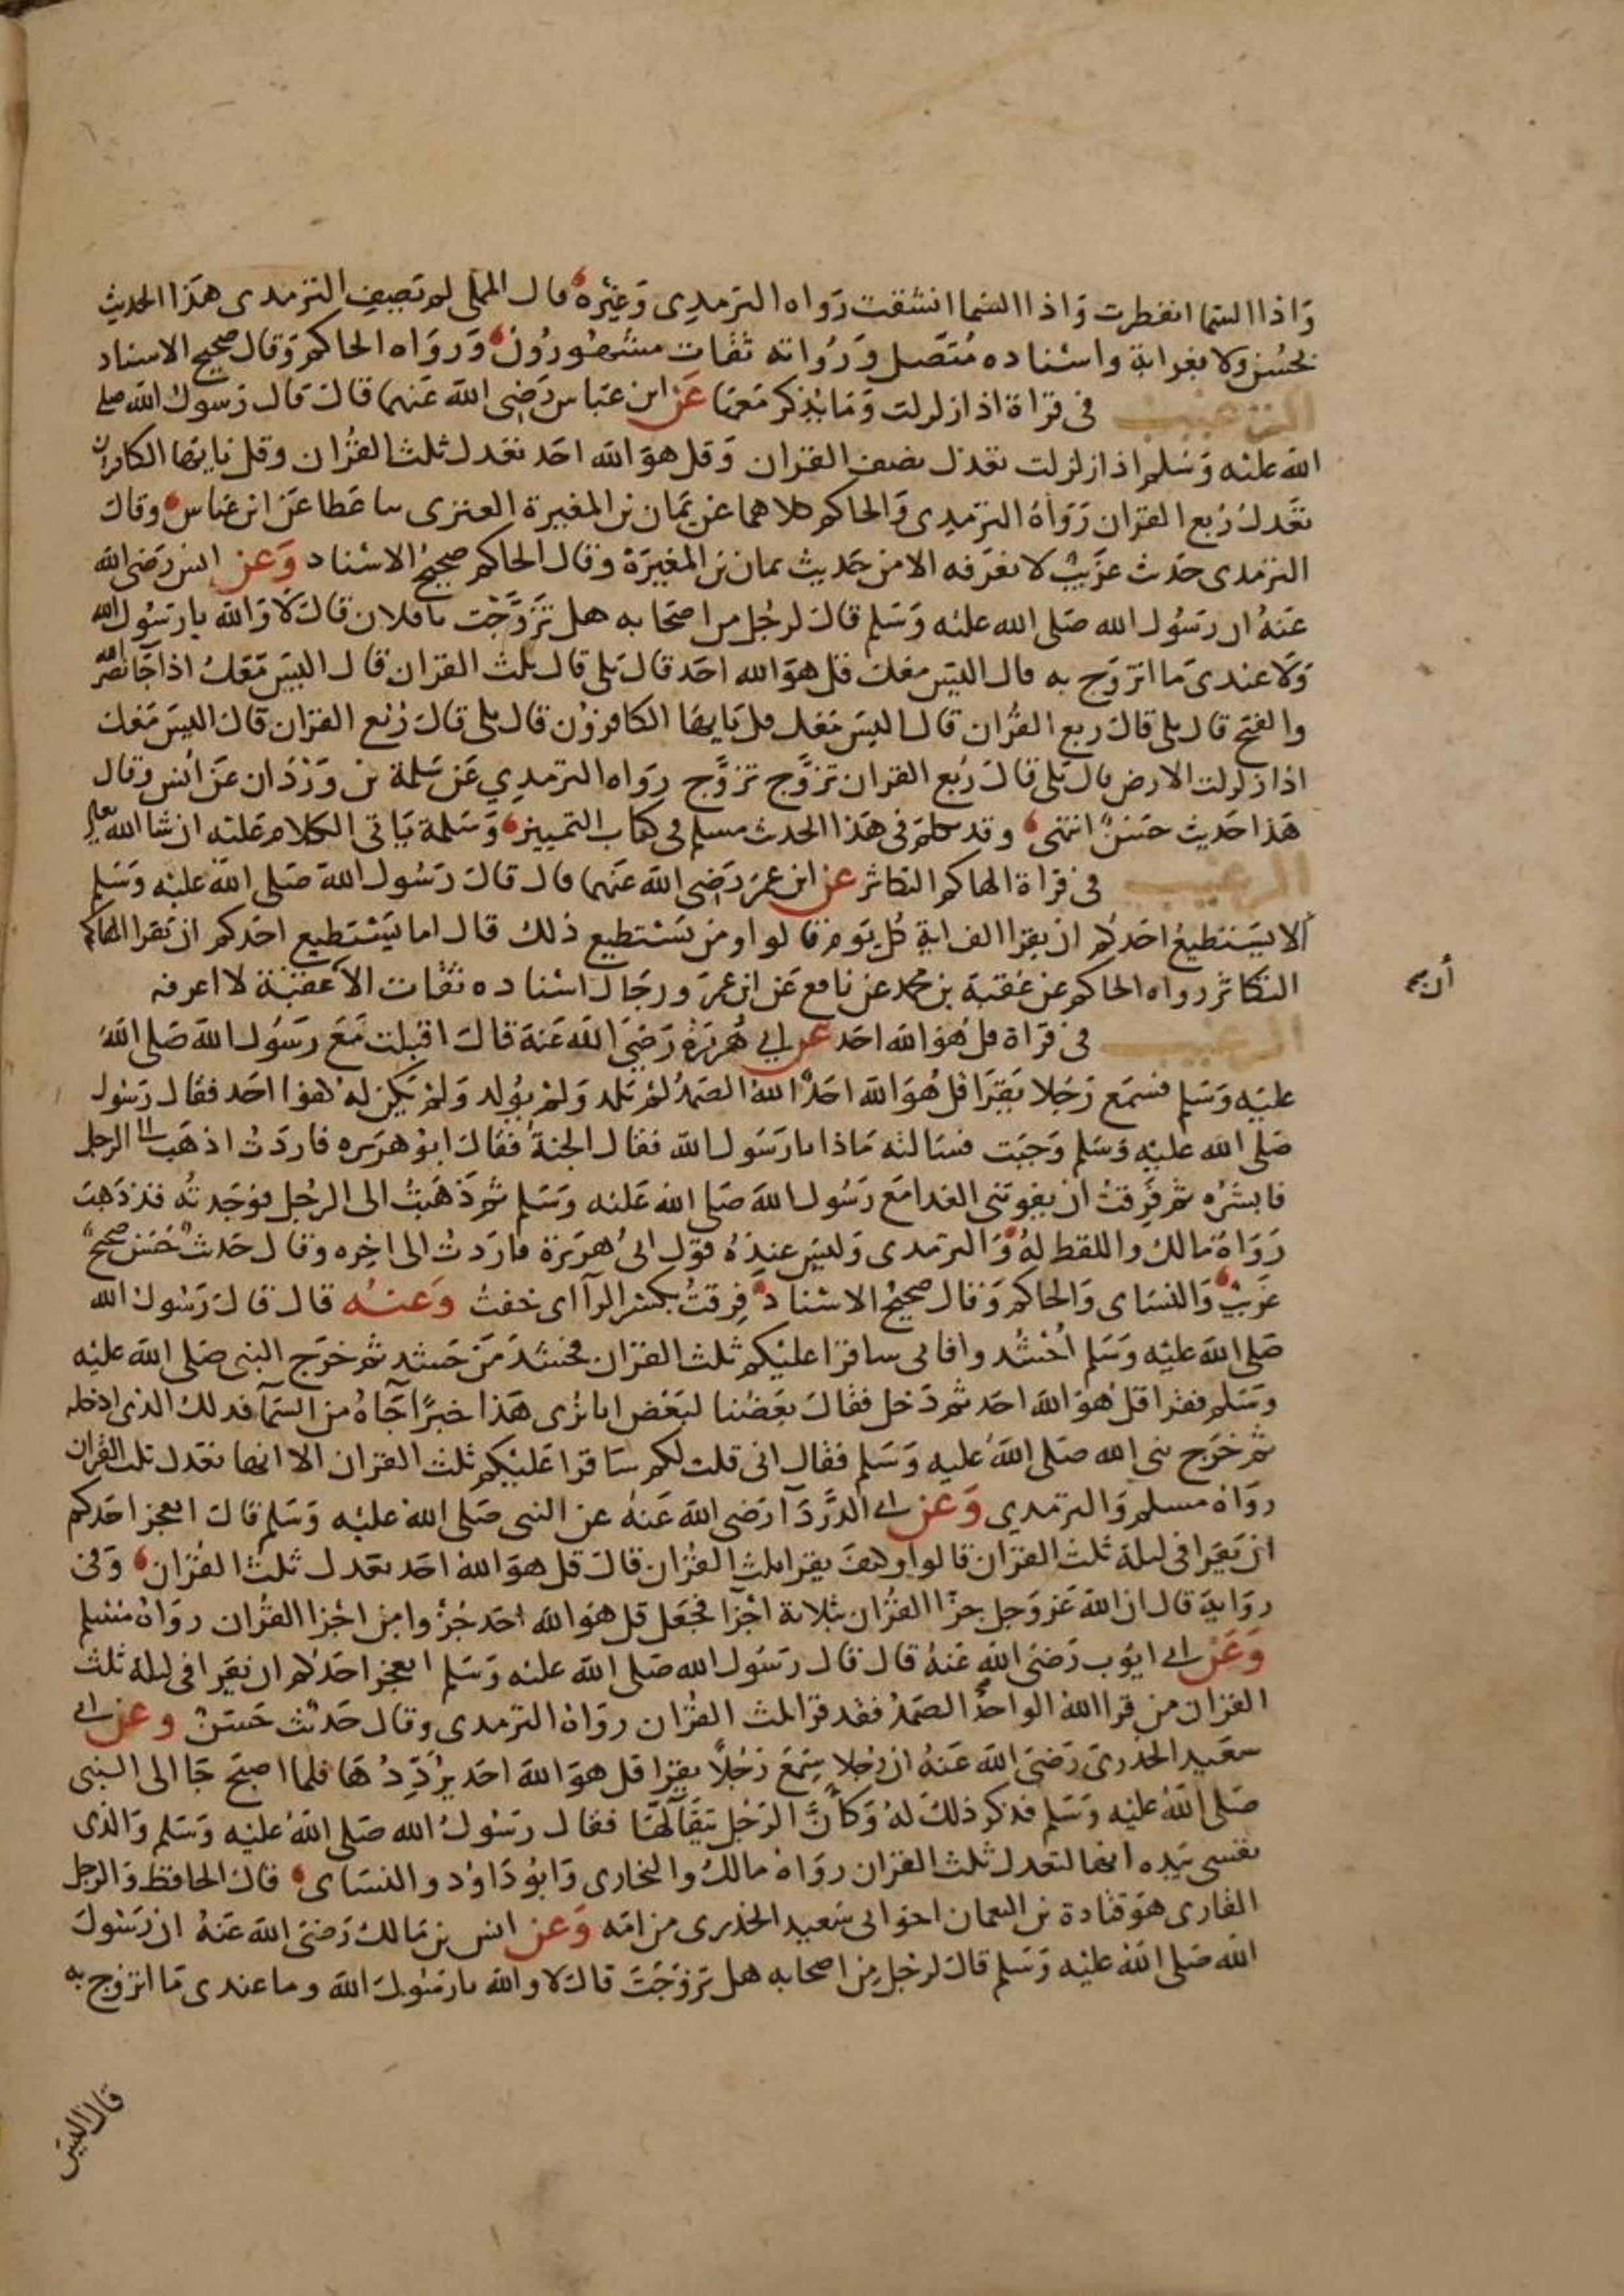 واذا السما انفطرت واذا السما انشقت رواه الترمدى وغيره قال المملى لم تصيف الترمدى هذا الحديث
بحسن ولا بغرابة واسناده متصل ورواته ثقات مشهورون ورواه الحاكم وقال صحيح الاسناد
الترغيب فى قراة اذا زلزلت وما يذكر معها عن ابن عباس رضى الله عنهما قال قال رسول الله صلى
الله عليه وسلم اذا زلزلت تعدل نصف القران وقل هو الله احد تعدل ثلث القران وقل يايها الكافرون
تعدل ربع القران رواه الترمدى والحاكم كلاهما عن يمان بن المغيرة العنزى سا عطا عن ابن عباس وقال
الترمدى حدث غريب لا نعرفه الا من حديث يمان بن المغيرة وقال الحاكم صحيح الاسناد وعن انس رضى الله
عنه ان رسول الله صلى الله عليه وسلم قال لرجل من اصحابه هل تزوجت يا فلان قال لا والله يا رسول الله
ولا عندى ما اتزوج به قال اليس معك قل هو الله احد قال بلى قال ثلث القران قال اليس معك اذا جا نصر الله
والفتح قال بلى قال ربع القران قال اليس معك قل يايها الكافرون قال بلى قال ربع القران قال اليس معك
اذا زلزلت الارض قال بلى قال ربع القران تزوج تزوج رواه الترمدي عن سلمة بن وردان عن انس وقال
هذا حديث حسن انتهى وقد تكلم فى هذا الحدث مسلم فى كتاب التمييز وسلمة ياتى الكلام عليه ان شا الله تعلى
الترغيب فى قراة الهاكم التكاثر عن ابن عمر رضى الله عنهما قال قال رسول الله صلى الله عليه وسلم
الا يستطيع احدكم ان يقرا الف اية كل يوم قالوا ومن يستطيع ذلك قال اما يستطيع احدكم ان يقرا الهاكم
التكاثر رواه الحاكم عن عقبة بن محمد عن نافع عن ابن عمر ورجال اسناده ثقات الا عقبة لا اعرفه
الترغيب فى قراة قل هو الله احد عن ابي هريرة رضى الله عنه قال اقبلت مع رسول الله صلى الله
عليه وسلم فسمع رجلا يقرا قل هو الله احد الله الصمد لم يلد ولم يولد ولم يكن له كفوا احد فقال رسول
صلى الله عليه وسلم وجبت فسالته ماذا يا رسول الله فقال الجنة فقال ابو هريره فاردت اذهب الى الرجل
فابشره ثم فرقت ان يفوتنى الغدا مع رسول الله صلى الله عليه وسلم ثم ذهبت الى الرجل فوجدته قد ذهب
رواه مالك واللفظ له والترمدى وليس عنده قول ابى هريرة فاردت الى اخره وقال حدث حسن صحيح
غريب والنساى والحاكم وقال صحيح الاسناد فرقت بكسر الرآ اى خفت وعنه قال قال رسول الله
صلى الله عليه وسلم احشدوا فانى ساقرا عليكم ثلث القران فحشد من حشد ثم خرج النبى صلى الله عليه
وسلم فقرا قل هو الله احد ثم دخل فقال بعضنا لبعض انا نرى هذا خبرا جآه من السمآ فدلك الذى ادخله
ثم خرج نبى الله صلى الله عليه وسلم فقال انى قلت لكم ساقرا عليكم ثلث القران الا انها تعدل ثلث القران
رواه مسلم والترمدي وعن ابي الدردآ رضى الله عنه عن النبى صلى الله عليه وسلم قال ايعجز احدكم
ان يقرا فى ليلة ثلث القران قالوا وكيف يقرا ثلث القران قال قل هو الله احد تعدل ثلث القران وفى
رواية قال ان الله عز وجل جزا القران بثلاثة اجزآ فجعل قل هو الله احد جزؤا من اجزا القران رواه مسلم
وعن ابي ايوب رضى الله عنه قال قال رسول الله صلى الله عليه وسلم ايعجز احدكم ان يقرا فى ليلة ثلث
القران من قرا الله الواحد الصمد فقد قرا ثلث القران رواه الترمدى وقال حديث حسن وعن ابي
سعيد الخدرى رضى الله عنه ان رجلا سمع رجلا يقرا قل هو الله احد يرددها فلما اصبح جا الى النبى
صلى الله عليه وسلم فذكر ذلك له وكان الرجل يتقآلها فقال رسول الله صلى الله عليه وسلم والذى
نفسى بيده انها لتعدل ثلث القران رواه مالك والبخارى وابو داود والنساى قال الحافظ والرجل
القارى هو قتادة بن النعمان اخو ابى سعيد الخدرى من امه وعن انس بن مالك رضى الله عنه ان رسول
الله صلى الله عليه وسلم قال لرجل من اصحابه هل تزوجت قال لا والله يا رسول الله وما عندى ما اتزوج به
قال اليس